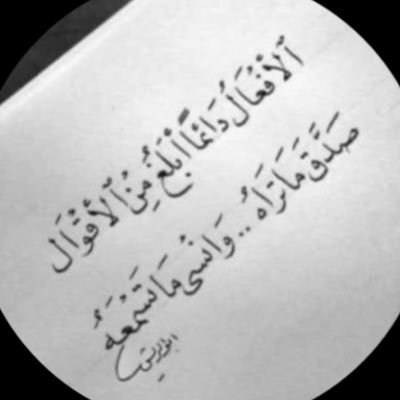 الأفْعَال دَائمًا أبْلَغُ مِنُ الأقْوَال
صَدَّق مَا تَرَاهُ .. وَانْسى مَا تَسْمَعَهُ